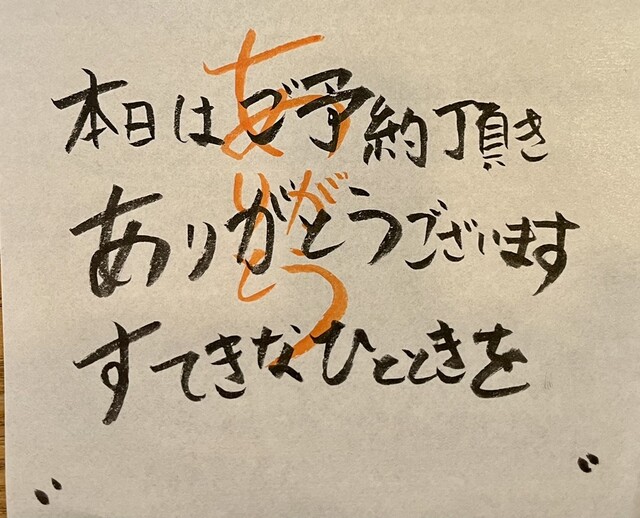 本日はご予約頂き
ありがとうございます
すてきなひとときを
ありがとう